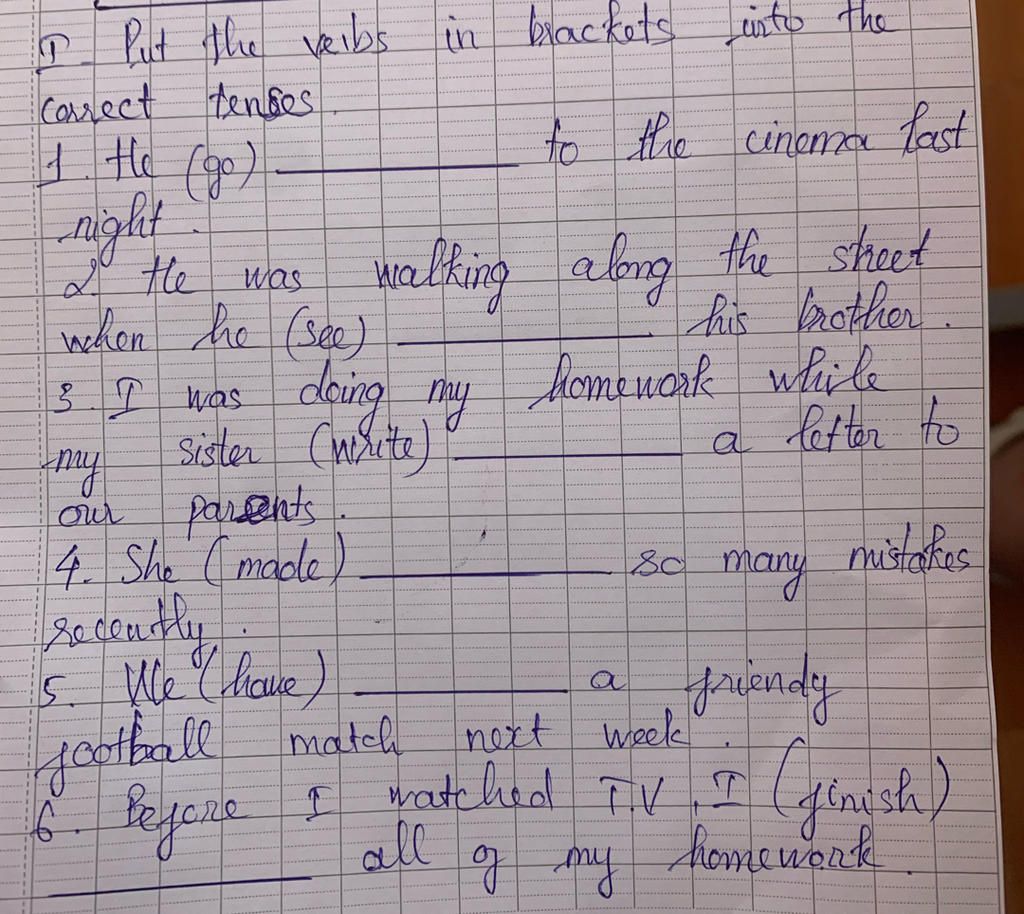 I. Put the verbs in brackets into the
correct tenses.
1. He (go) __________ to the cinema last
night.
2. He was walking along the street
when he (see) __________ his brother.
3. I was doing my homework while
my sister (write) __________ a letter to
our parents.
4. She (made) __________ so many mistakes
recently.
5. We (have) __________ a friendy
football match next week.
6. Before I watched T.V, I (finish)
__________ all of my homework.